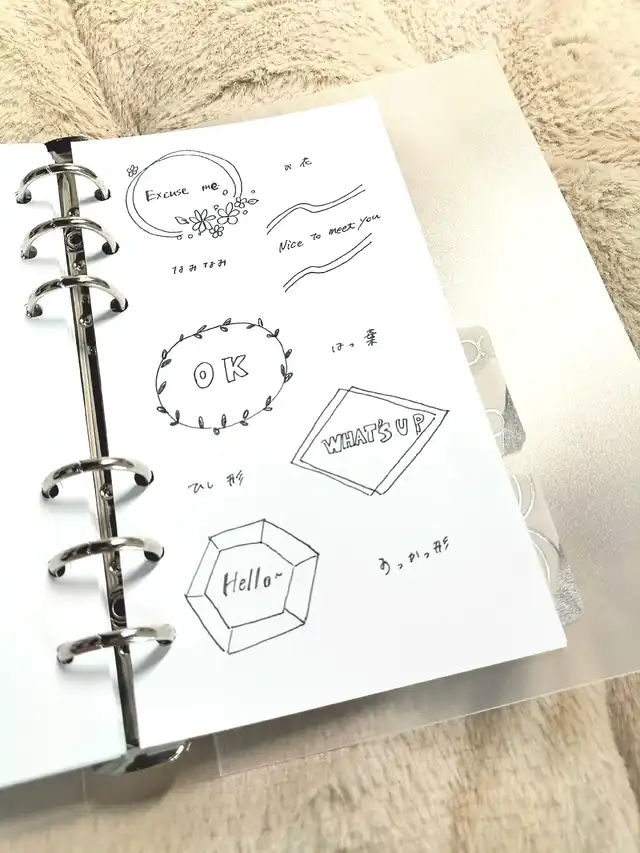 Excuse me
お花
Nice to meet you
なみなみ
OK
はっ葉
WHAT'S UP
ひし形
Hello~
ろっかっ形